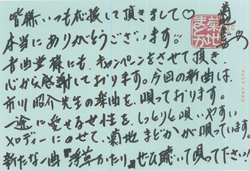 皆様いつも応援して頂きまして♡
本当にありがとうございます!!
様にも、キャンペーンをさせて頂き、
心から感謝しております。今回の新曲は、
市川昭介先生の楽曲を、唄っております。
一途に愛する女性を、しっとり唄いやすい
メロディーにのせて、菊地まどかが唄っています。
新たな一曲『浮草かたり』ぜひ聴いて唄って下さい!